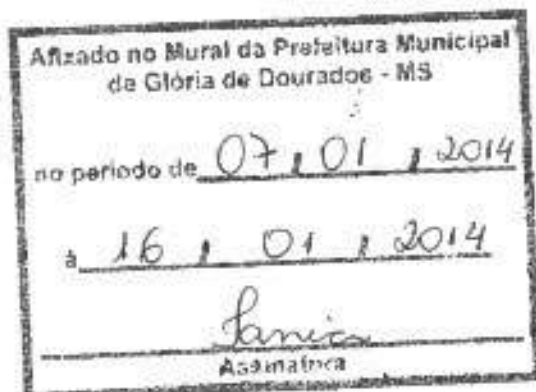 Afixado no Mural da Prefeitura Municipal
de Glória de Dourados - MS
no período de 07 / 01 / 2014
à 16 / 01 / 2014
Assinatura